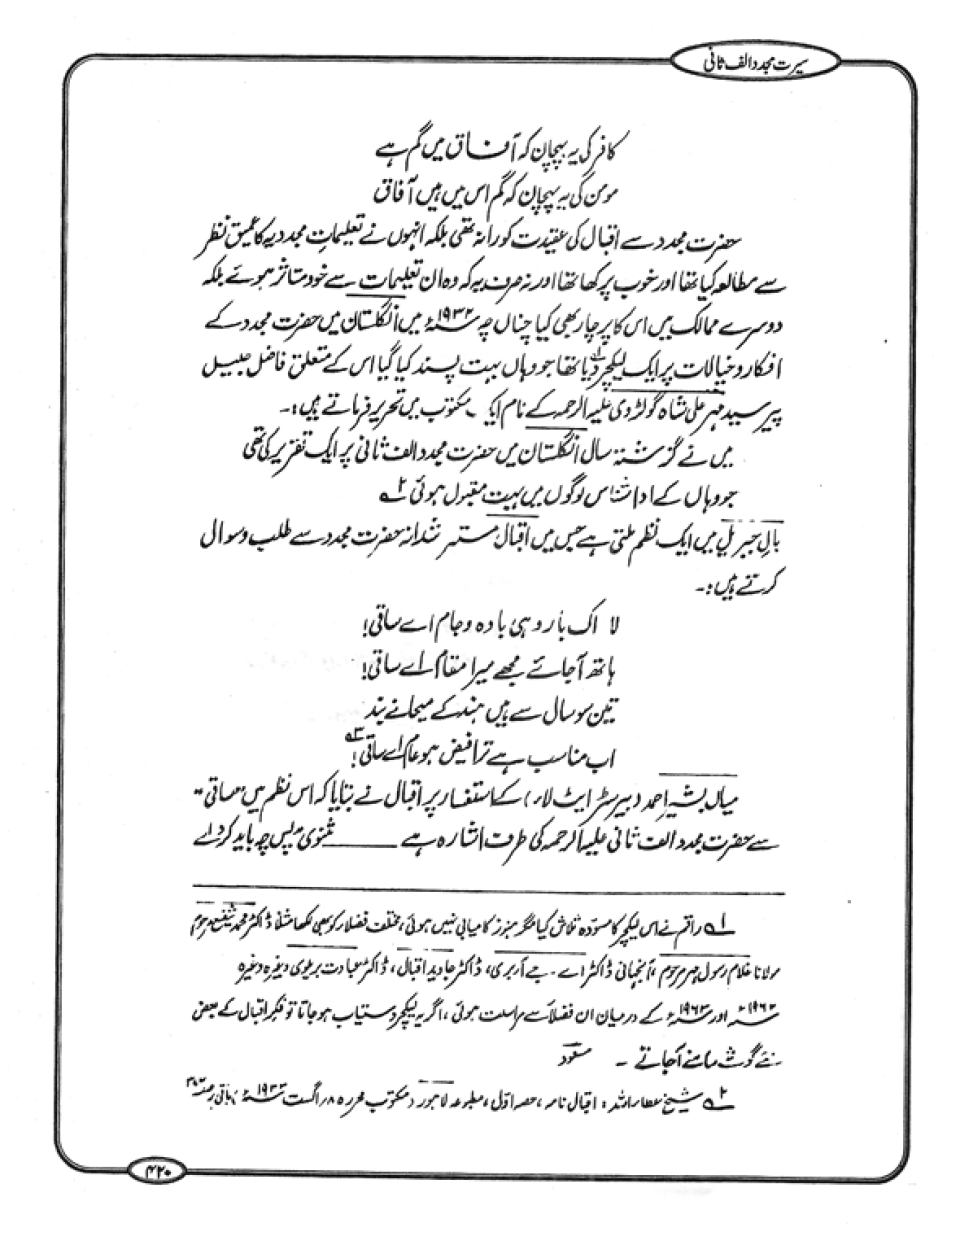 سیرت مجدد الف ثانی
کافر کی یہ پہچان کہ آفاق میں گم ہے
مومن کی یہ پہچان کہ گم اس میں ہیں آفاق
حضرت مجدد سے اقبال کی عقیدت کورانہ تھی بلکہ انہوں نے تعلیماتِ مجددیہ کا عمیق نظر
سے مطالعہ کیا تھا اور خوب پرکھا تھا اور نہ صرف یہ کہ وہ ان تعلیمات سے خود متاثر ہوئے بلکہ
دوسرے ممالک میں اس کا پرچار بھی کیا چناں چہ ۱۹۳۲ء میں انگلستان میں حضرت مجدد کے
افکار و خیالات پر ایک لیکچر دیا تھا۱ جو وہاں بہت پسند کیا گیا اس کے متعلق فاضل جلیل
پیر سید مہر علی شاہ گولڑوی علیہ الرحمہ کے نام ایک مکتوب میں تحریر فرماتے ہیں:۔
میں نے گزشتہ سال انگلستان میں حضرت مجدد الف ثانی پر ایک تقریر کی تھی
جو وہاں کے ادا شناس لوگوں میں بہت مقبول ہوئی ۲؎
بالِ جبریل میں ایک نظم ملتی ہے جس میں اقبال مستمر شدانہ حضرت مجدد سے طلب و سوال
کرتے ہیں:۔
لا اک بار وہی بادہ و جام اے ساقی!
ہاتھ آجائے مجھے میرا مقام اے ساقی!
تین سو سال سے ہیں ہند کے میخانے بند
اب مناسب ہے ترا فیض ہو عام اے ساقی! ۳؎
میاں بشیر احمد (بیرسٹر ایٹ لاء) کے استفسار پر اقبال نے بتایا کہ اس نظم میں "ساقی"
سے حضرت مجدد الف ثانی علیہ الرحمہ کی طرف اشارہ ہے ــــــــ مثنوی "پس چہ باید کرد اے
۱؎ راقم نے اس لیکچر کا مسودہ تلاش کیا مگر ہنوز کامیابی نہیں ہوئی، مختلف فضلاء کو بھی لکھا مثلاً ڈاکٹر محمد شفیع مرحوم
مولانا غلام رسول مہر مرحوم، آنجہانی ڈاکٹر اے۔ جے آربری، ڈاکٹر جاوید اقبال، ڈاکٹر عبادت بریلوی وغیرہ وغیرہ
۱۹۶۲ء اور ۱۹۶۳ء کے درمیان ان فضلاء سے مراسلت ہوئی، اگر یہ لیکچر دستیاب ہو جاتا تو فکر اقبال کے بعض
نئے گوشے سامنے آجاتے ۔ مسعود
۲؎ شیخ عطاء اللہ: اقبال نامہ، حصہ اول، مطبوعہ لاہور (مکتوب محررہ ۱۸ اگست ۱۹۳۳ء) باقی بر صفحہ
۴۲۰